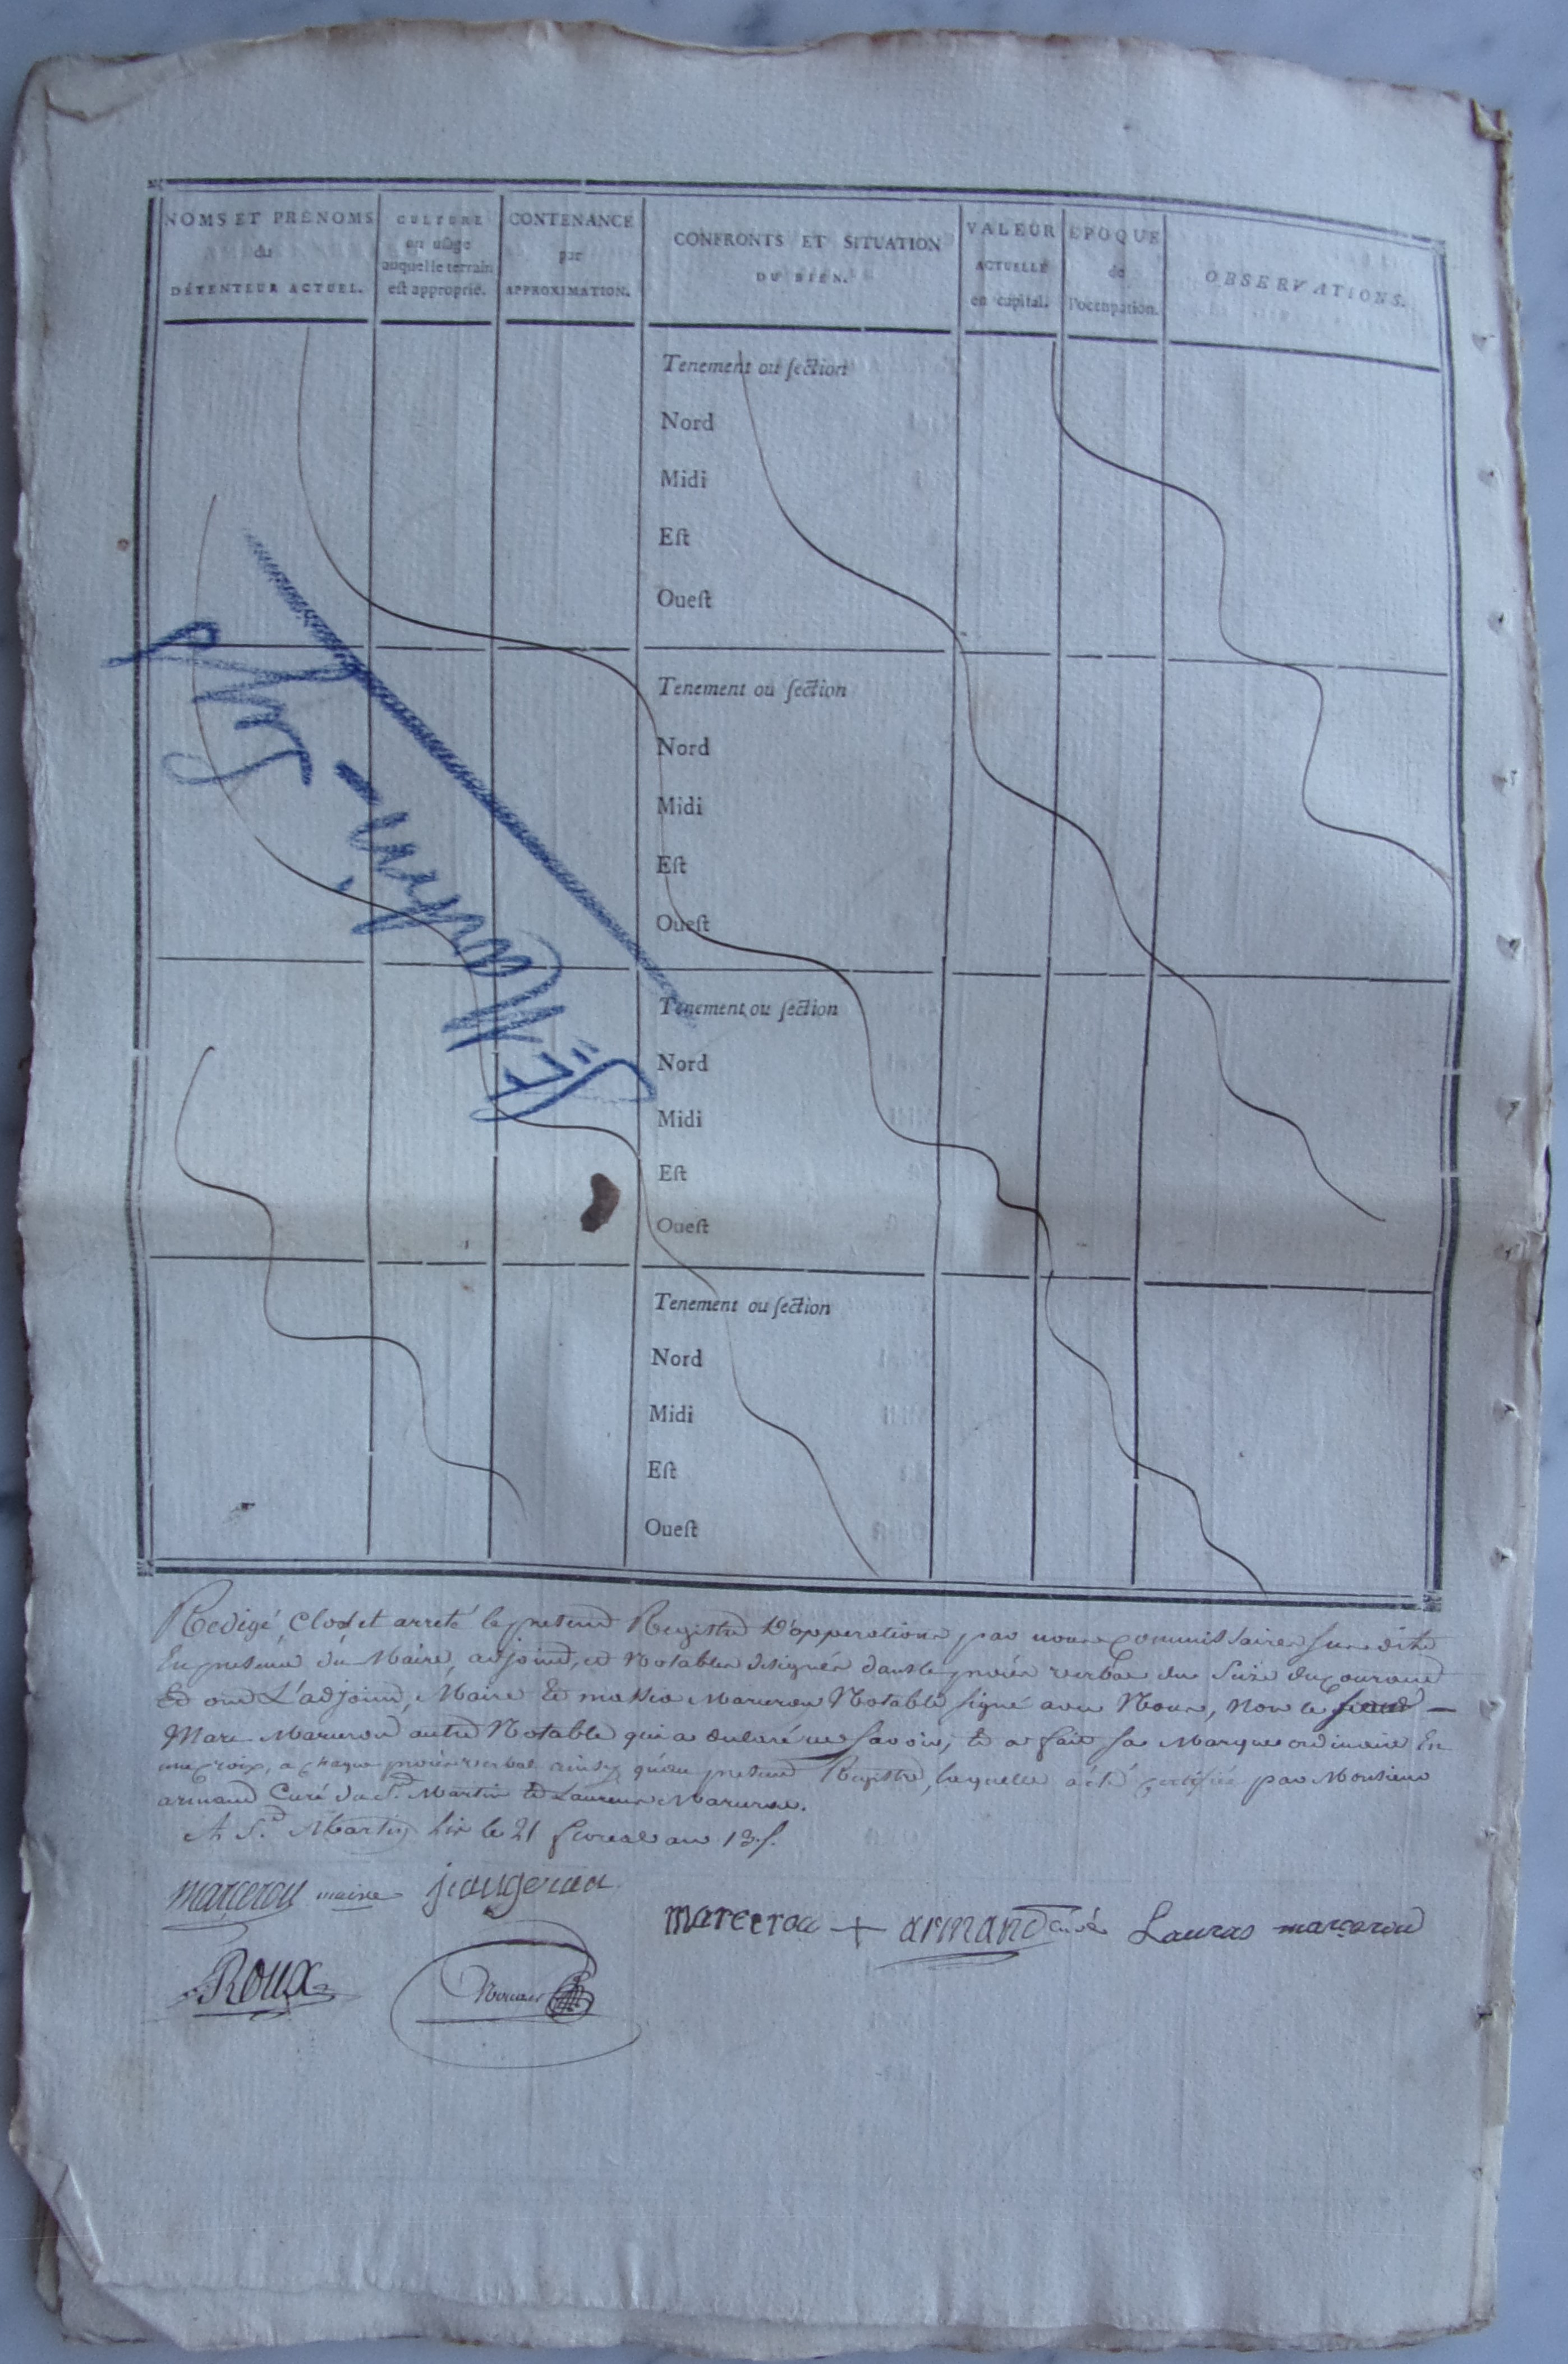 NOMS ET PRÉNOMS
du
DÉTENTEUR ACTUEL.
CULTURE
ou usage
auquel le terrain
est approprié.
CONTENANCE
par
APPROXIMATION.
CONFRONTS ET SITUATION
DU BIEN.
VALEUR
ACTUELLE
en capital.
EPOQUE
de
l'occupation.
OBSERVATIONS.
Tenement ou ſection
Nord
Midi
Eſt
Oueſt
Tenement ou ſection
Nord
Midi
Eſt
Oueſt
Tenement ou ſection
Nord
Midi
Eſt
Oueſt
Tenement ou ſection
Nord
Midi
Eſt
Oueſt
St Martin - Lys
Redigé, Clos et arreté le present Registre D'opperations par nous commissaires susdits
En presence du Maire, adjoint, et Notables designés dans le procés verbal du seize du courant
Et ont L'adjoint, Maire et Marcerou Notable signé avec Nous, non le
Marc Marcerou autre Notable qui a declaré ne savoir, et a fait sa Marque ordinaire En
une croix, a chaque procés verbal ainsy qu'au present Registre, laquelle a été certifiée par Monsieur
armand Curé de St. Martin et Lauras Marcerou.
A St. Martin Lis le 21 floreal an 13./.
marcerou maire jaugerou
marcerou + armand curé Lauras marcerou
Roux